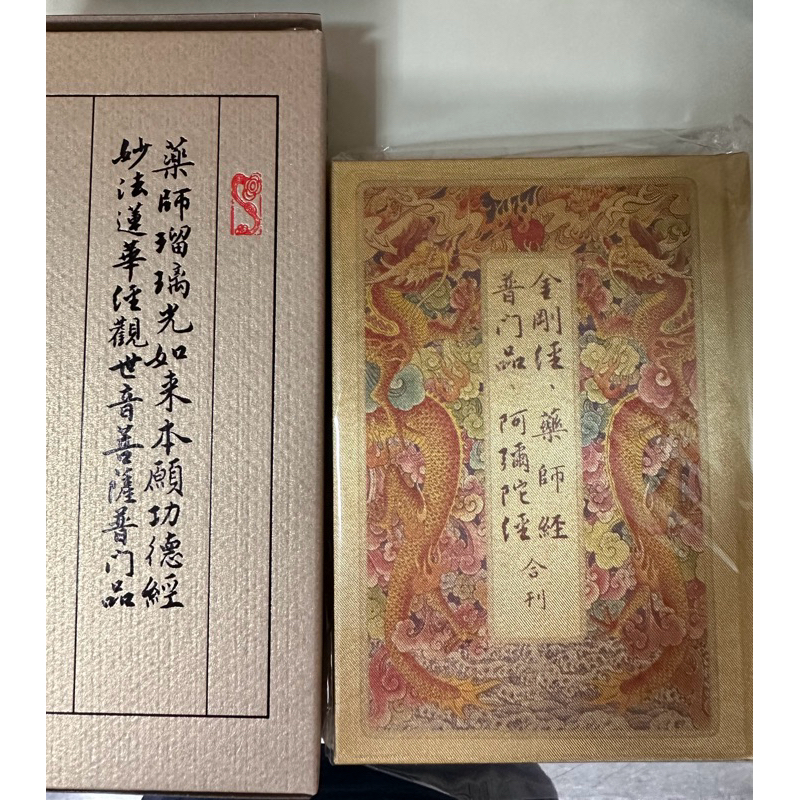 藥師瑠璃光如来本願功德經
妙法蓮華径觀世音菩薩普门品
金剛径、藥師經
普门品、阿彌陀径
合刊